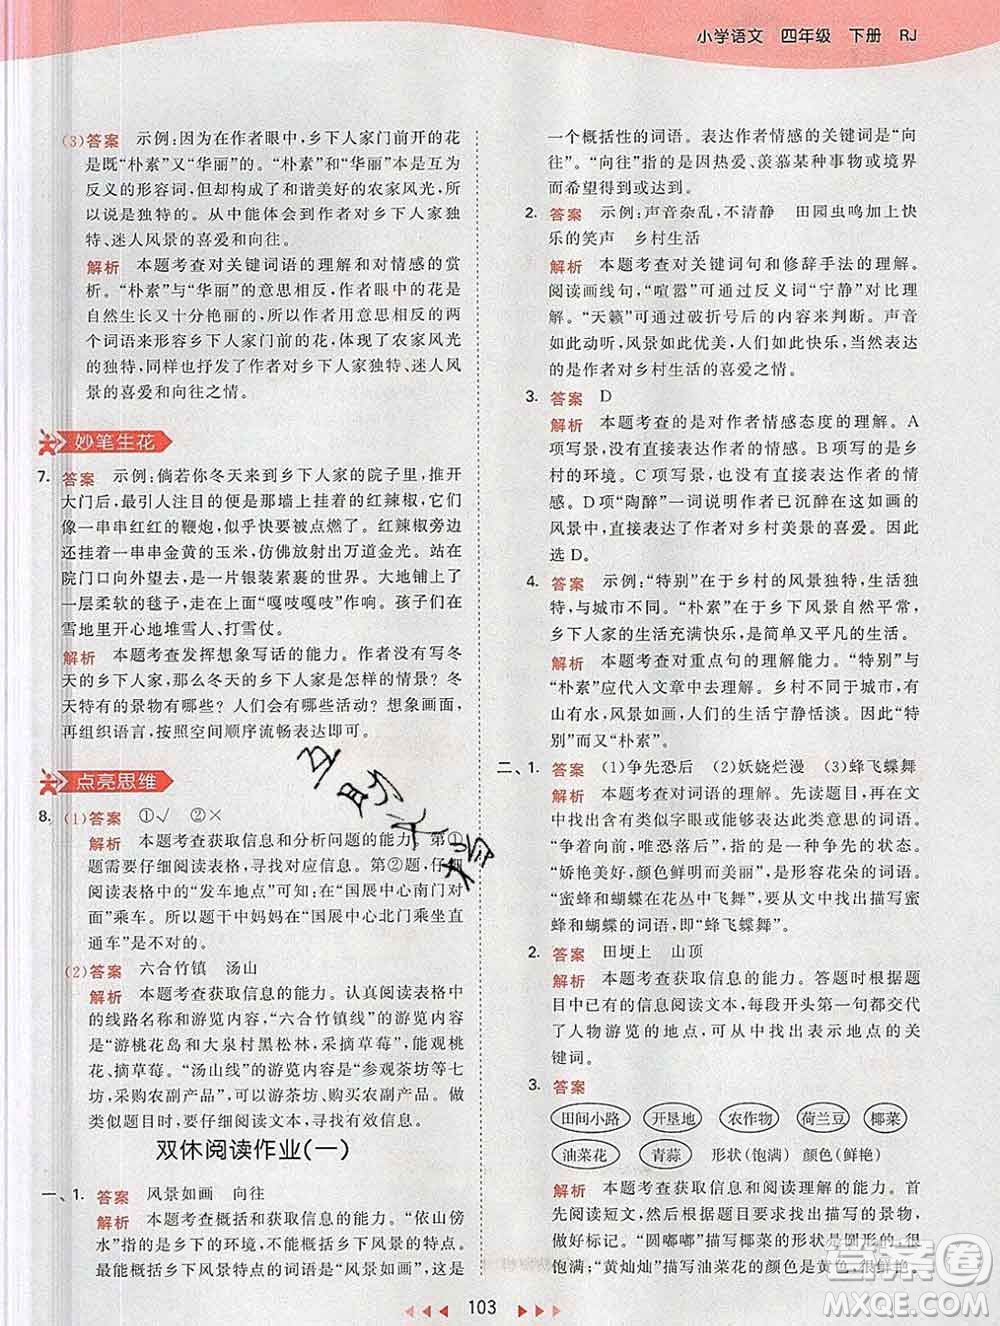 小学语文 四年级 下册 RJ
(3)答案 示例:因为在作者眼中,乡下人家门前开的花
是既“朴素”又“华丽”的。“朴素”和“华丽”本是互为
反义的形容词,但却构成了和谐美好的农家风光,所
以说是独特的。从中能体会到作者对乡下人家独
特、迷人风景的喜爱和向往。
解析 本题考查对关键词语的理解和对情感的赏
析。“朴素”与“华丽”的意思相反,形容乡下的花是
自然生长又十分艳丽的。作者用意思相反的两
个词语来形容乡下人家门前的花,体现了农家风光
的独特,同样也抒发了作者对乡下人家独特、迷人风
景的喜爱和向往之情。
妙笔生花
7. 答案 示例:倘若你冬天来到乡下人家的院子里,推开
大门后,最引人注目的便是那墙上挂着的红辣椒,它们
像一串串红红的鞭炮,似乎快要点燃了。红辣椒旁边
还挂着一串串金黄的玉米,仿佛放射出万道金光。站在
院门口向外望去,是一片银装素裹的世界。大地铺上了
一层柔软的毯子,走起来“嘎吱嘎吱”作响。孩子们在
雪地里开心地堆雪人、打雪仗。
解析 本题考查发挥想象写话的能力。作者没有写冬
天的乡下人家,那么冬天的乡下人家是怎样的情景?冬
天有的景物有哪些?人们会有哪些活动?想象画面,
再组织语言,按照空间顺序流畅表达出来即可。
点亮思维
8. (1)答案 ①√ ②×
解析 本题考查获取信息和分析问题的能力。第①
题需要仔细阅读表格,寻找对应信息。第②题,仔细
阅读表格中的“发车地点”可知:在“国展中心南门对
面”乘车。所以题干中妈妈的“在国展中心北门乘坐直
通车”是不对的。
(2)答案 六合竹镇 汤山
解析 本题考查获取信息的能力。认真阅读表格中
的线路名称与游览内容,“六合竹镇线”的游览内容
是“游桃花岛和大泉村黑松林,采摘草莓”,能观桃
花、摘草莓。“汤山线”的游览内容是“参观茶坊等七
坊,采购农副产品”,可以游茶坊、购买农副产品。做
此类题目时,要仔细阅读文本,找出关键信息。
双休阅读作业(一)
一、1. 答案 风景如画 向往
解析 本题考查概括和获取信息的能力。“依山傍
水”指的是乡下的环境,不能概括乡下风景的特点。
最能概括乡下风景特点的词语是“风景如画”,这是
一个概括性的词语。表达作者情感的关键词是“向
往”。“向往”指的是因热爱、羡慕某种事物或境界
而希望得到或达到。
2. 答案 示例:声音杂乱,不清静 田园虫鸣加上快
乐的笑声 乡村生活
解析 本题考查对关键词句和修辞手法的理解。
阅读画线句,“喧嚣”可以通过反义词“宁静”理解。
“天籁”可以通过破折号后的内容来判断。声音
如此动听,风景如此优美,人们如此快乐,当然表达
了作者对乡村生活的喜爱之情。
3. 答案 D
解析 本题考查的是对作者情感态度的理解。A
项写景,没有体现作者直接抒发的情感。B项写乡
村的环境。C项写景,也没有直接抒发作者的
情感。D项“陶醉”一词说明作者已沉醉在如画的
风景中,直接表达了作者对乡村美景的喜爱。因此
选D。
4. 答案 示例:“特别”在于乡村的风景独特,生活独
特,与城市不同。“朴素”在于乡下风景自然平常,
乡下人家的生活充满快乐,是简单又平凡的生活。
解析 本题考查对重点句的理解能力。“特别”与
“朴素”应代入文章中去理解。乡村风景独特,有
山有水,风景如画,人们的生活宁静恬淡。因此,“特
别”而又“朴素”。
二、1. 答案 (1)争先恐后 (2)妖娆烂漫 (3)蜂飞蝶舞
解析 本题考查对词语的理解。读题后,应从短
文中找出合适的表达此类意思的四字词语。
“争着向前,唯恐落后”,是一种争先的状态。
“娇艳美好,颜色鲜明而美丽”,是形容花朵的词语。
“蜜蜂和蝴蝶在花丛中飞舞”,从文中找出描写蜜
蜂和蝴蝶的词语,即“蜂飞蝶舞”。
2. 答案 田埂上 山顶
解析 本题考查获取信息的能力。答题时根据
题目中已有的信息阅读文本,每段开头第一句都交代
了人物游览的地点,可以从文中找出表示地点的关
键词。
3. 答案
田间小路 开垦地 农作物 荷兰豆 椰菜
油菜花 青蒜 形状(饱满) 颜色(鲜艳)
解析 本题考查获取信息和阅读理解的能力。首
先阅读短文,然后根据题目要求找出描写的景物,
做好标记。“圆嘟嘟”描写豌豆的形状是圆形的、很
饱满;“黄灿灿”描写油菜花的颜色是黄色,很鲜艳。
103
答案卷
MXQE.COM